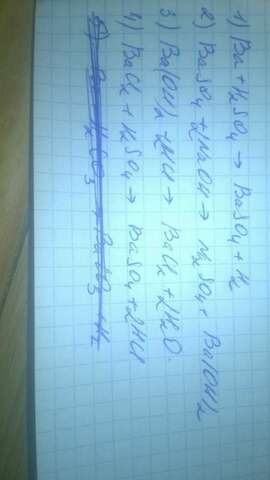 1) Ba + H2SO4 → BaSO4 + H2
2) BaSO4 + 2NaOH → Na2SO4 + Ba(OH)2
3) Ba(OH)2 + 2HCl → BaCl2 + 2H2O
4) BaCl2 + H2SO4 → BaSO4 + 2HCl